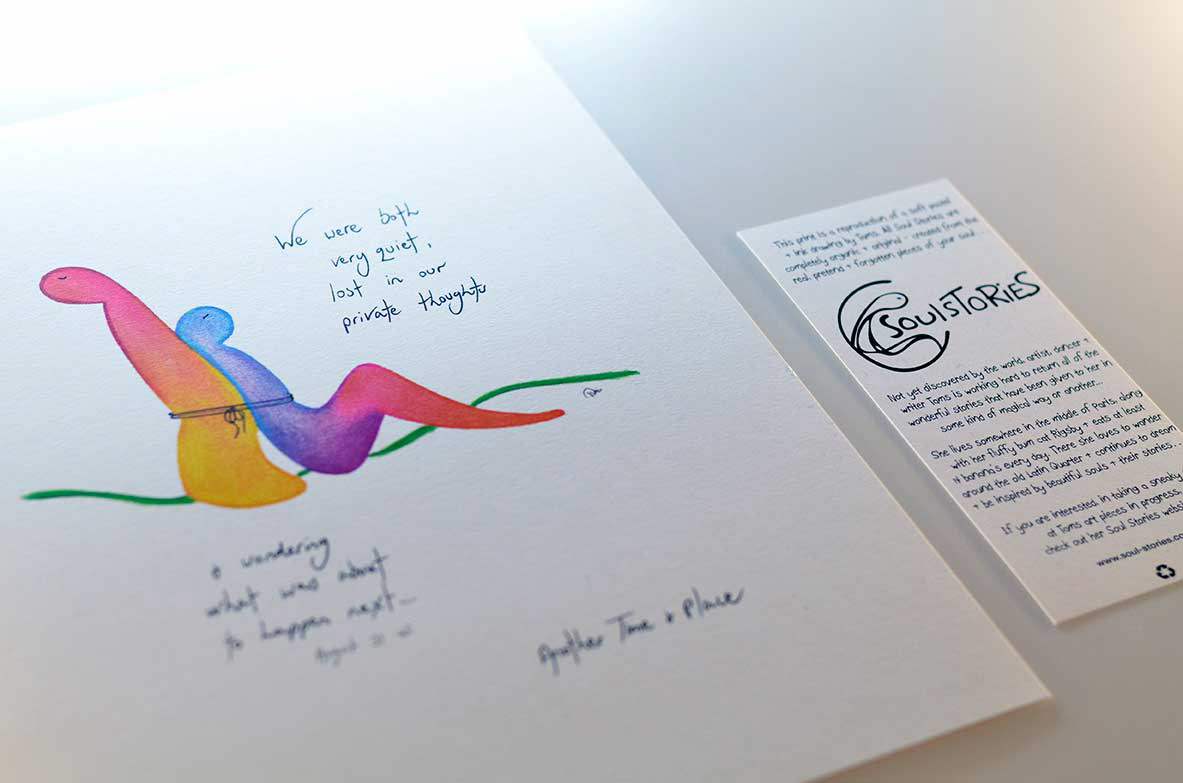 We were both
very quiet,
lost in our
private thoughts
+ wondering
what was about
to happen next...
August
Another Time + Place
This print is a reproduction of a soft pastel
+ ink drawing by Toms. All Soul Stories are
completely organic + original - created from the
real, pretend + forgotten pieces of your soul...
SOULSTORIES
Not yet discovered by the world, artist, dancer +
writer Toms is working hard to return all of the
wonderful stories that have been given to her in
some kind of magical way or another...
She lives somewhere in the middle of Paris, along
with her fluffy bum cat Rigsby + eats at least
14 banana's every day. There she loves to wander
around the old Latin Quarter + continues to dream
+ be inspired by beautiful souls + their stories...
If you are interested in taking a sneaky
at Toms art pieces in progress,
check out her Soul Stories websi
www.soul-stories.co